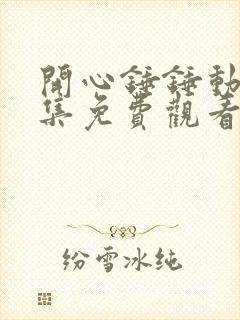 開心錘錘動
集免費觀看
紛雪冰純